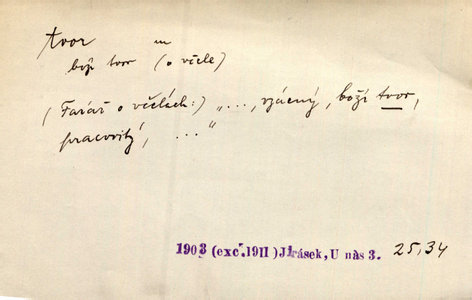 tvor m
boží tvor (o včele)
(Farář o včelách:) „..., vzácný, boží tvor,
pracovitý, ..."
1903 (exc. 1911) Jirásek, U nás 3. 25,34